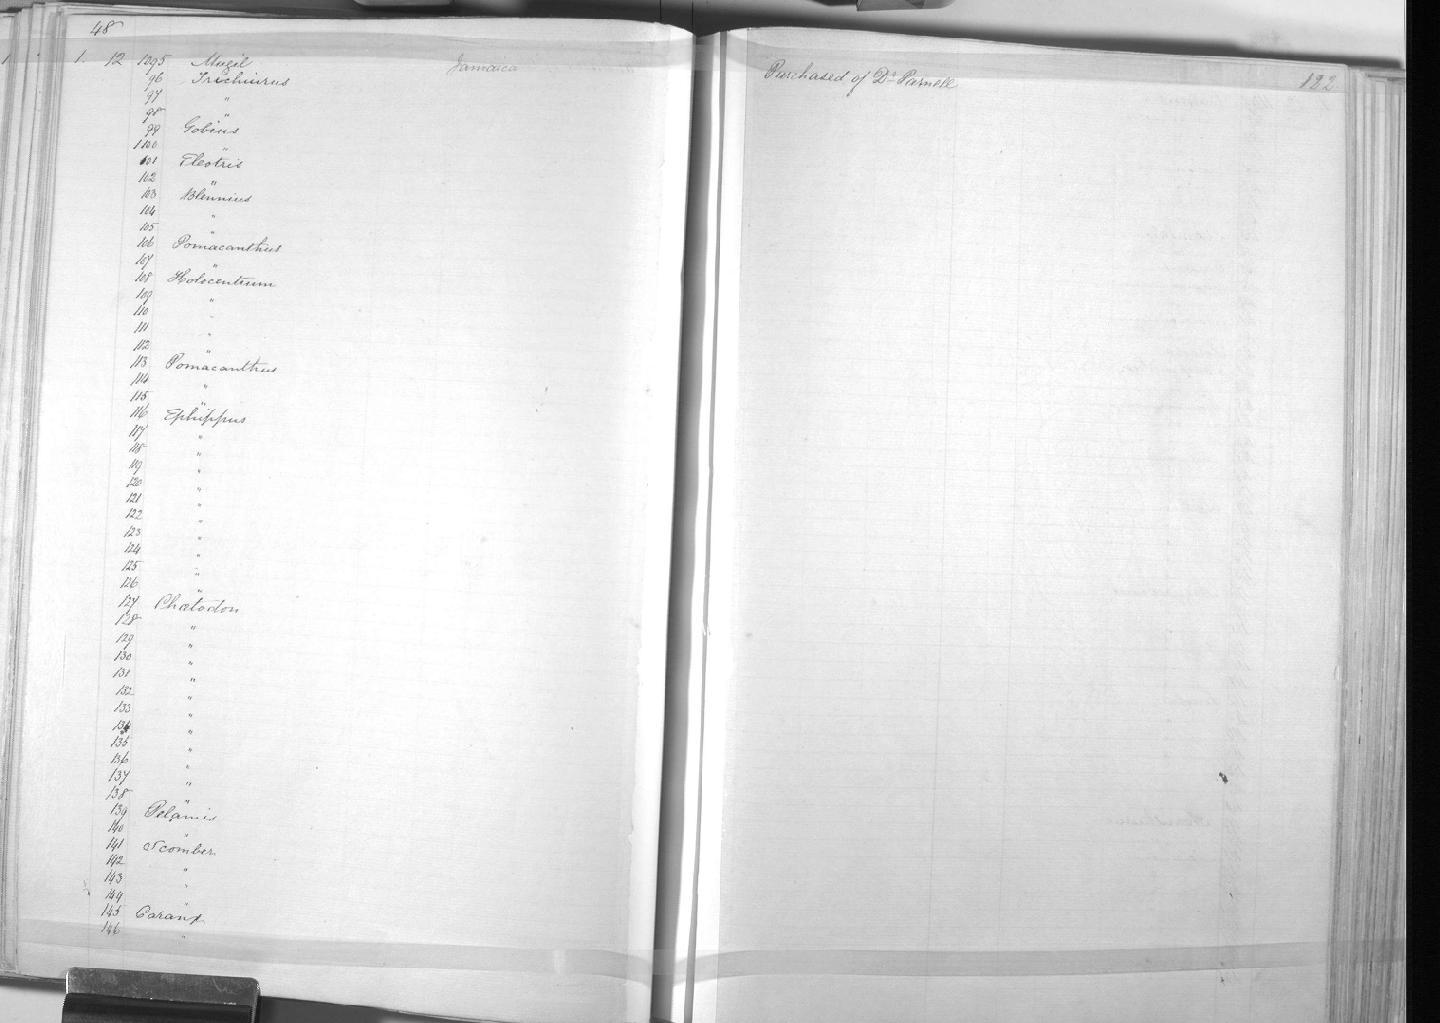 48
1. 12 1095 Mugil Jamaica Purchased of Dr Parnell 122
96 Trichiurus
97 "
98 "
99 Gobius
1100 "
101 Eleotris
102 "
103 Blennius
104 "
105 "
106 Pomacanthus
107 "
108 Holocentrum
109 "
110 "
111 "
112 "
113 Pomacanthus
114 "
115 "
116 Ephippus
117 "
118 "
119 "
120 "
121 "
122 "
123 "
124 "
125 "
126 "
127 Chætodon
128 "
129 "
130 "
131 "
132 "
133 "
134 "
135 "
136 "
137 "
138 "
139 Pelamis
140 "
141 Scomber
142 "
143 "
144
145 Caranx
146 "